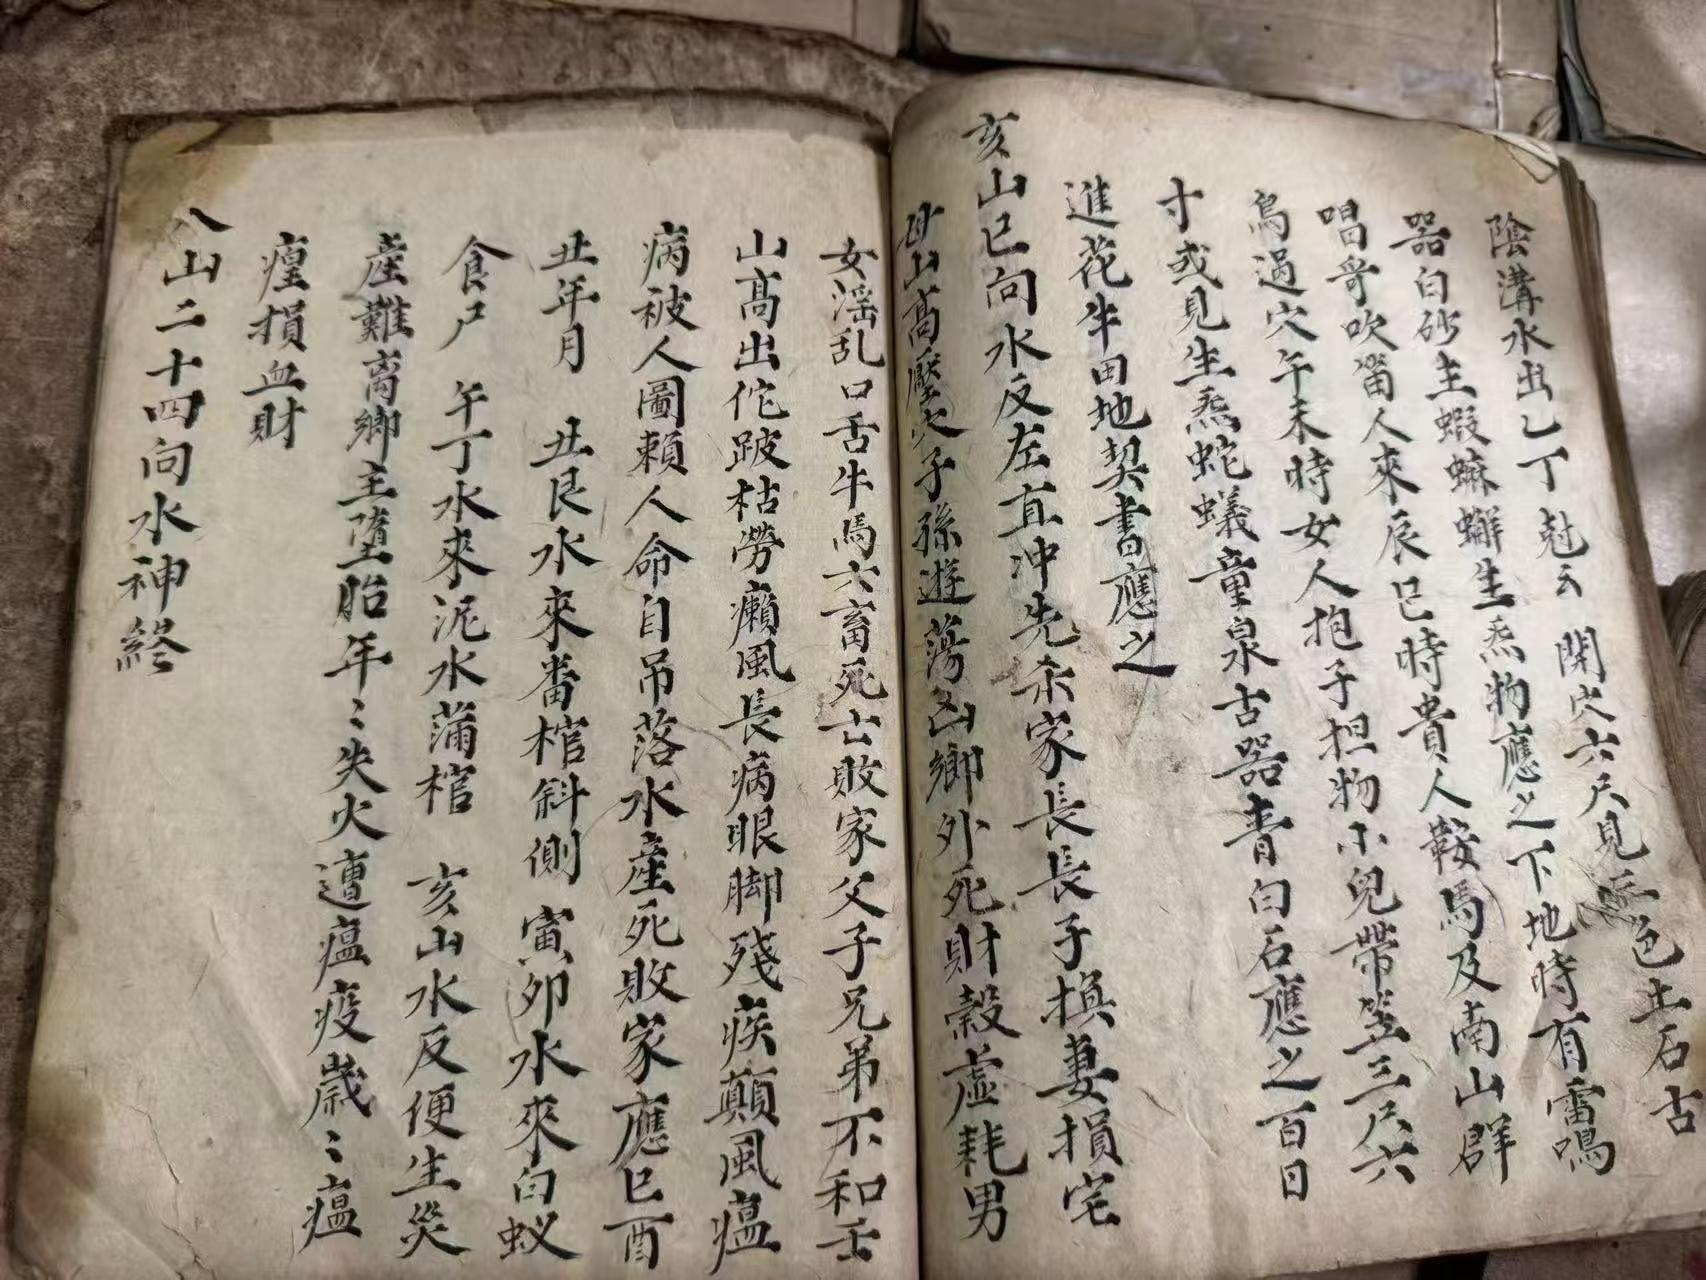 陰溝水出乙丁尅云　開穴六尺見三色土石古
器白砂主蝦蟆蠏生炁物應之下地時有雷鳴
唱哥吹畨人來辰巳時貴人鞍馬及南山群
鳥過穴午未時女人抱子担物小兒帶笠三尺六
寸或見生炁蛇蟻童泉古器青白石應之百日
進花牛田地契書應之
亥山巳向水反左直冲先杀家長長子換妻損宅
山高壓穴子孫遊蕩凶鄉外死財穀虛耗男
女淫乱口舌牛馬六畜死亡敗家父子兄弟不和壬
山高出佗跛枯勞癩風長病眼脚殘疾顛風瘟
病被人圖賴人命自吊落水産死敗家應巳酉
丑年月　丑艮水來畨棺斜側　寅卯水來白蚁
食尸　午丁水來泥水蒲棺　亥山水反便生災
産難离鄉主墮胎年〻失火遭瘟疫歲〻瘟
㾮損血財
八山二十四向水神終